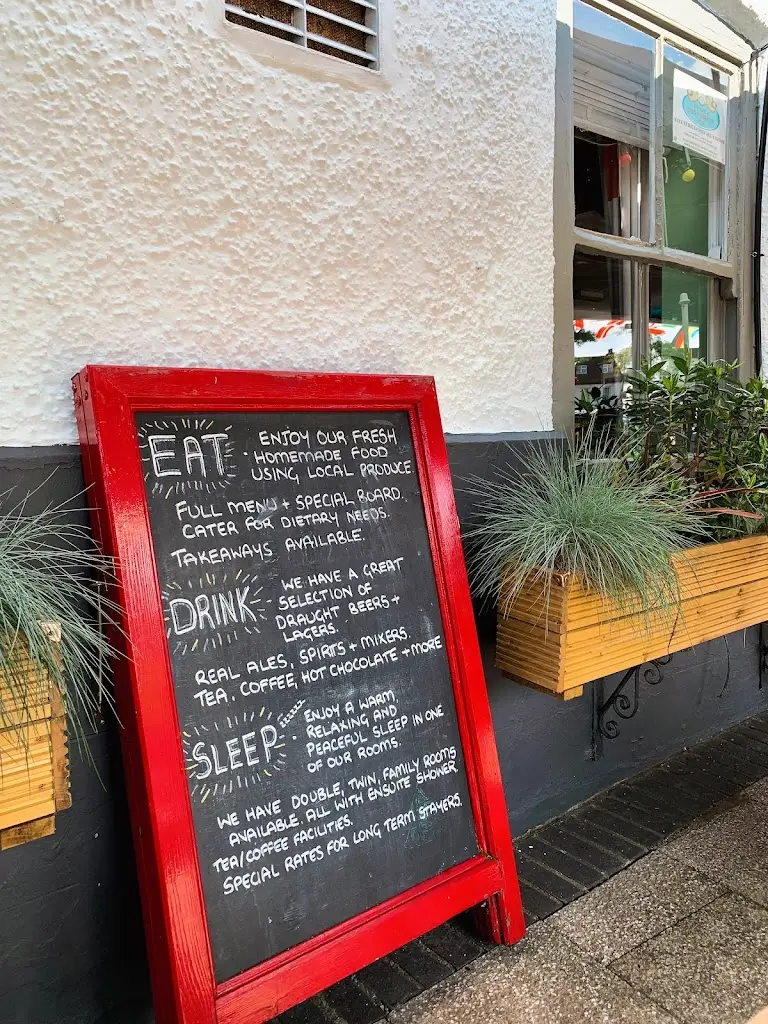 EAT
· ENJOY OUR FRESH
HOMEMADE FOOD
USING LOCAL PRODUCE.
FULL MENU + SPECIAL BOARD.
CATER FOR DIETARY NEEDS.
TAKEAWAYS AVAILABLE.
DRINK
WE HAVE A GREAT
SELECTION OF
DRAUGHT BEERS +
LAGERS.
REAL ALES, SPIRITS + MIXERS.
TEA, COFFEE, HOT CHOCOLATE + MORE
SLEEP
· ENJOY A WARM,
RELAXING AND
PEACEFUL SLEEP IN ONE
OF OUR ROOMS.
WE HAVE DOUBLE, TWIN, FAMILY ROOMS
AVAILABLE. ALL WITH ENSUITE SHOWER,
TEA/COFFEE FACILITIES.
SPECIAL RATES FOR LONG TERM STAYERS.